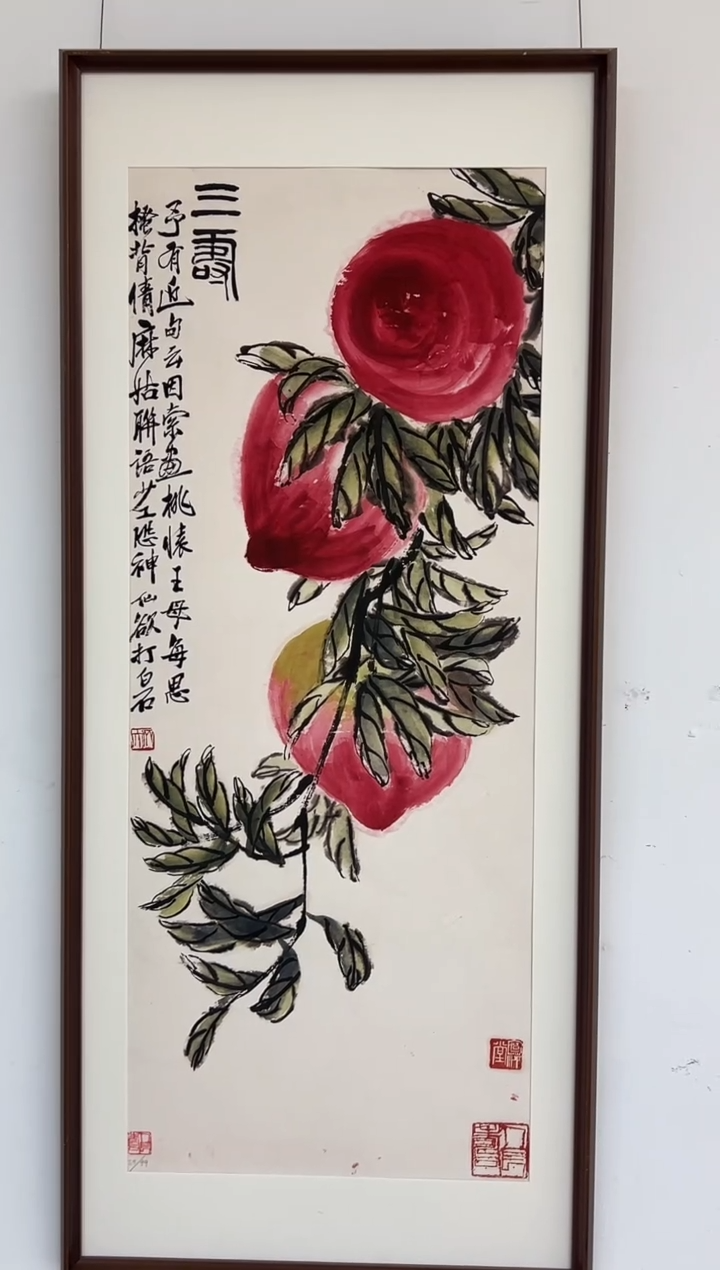 三壽
予有近句云因索畫桃懷王母每思
搔背倩麻姑聯語恐神仙欲打白石